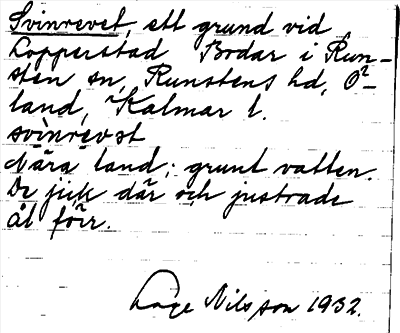 Svinrevet, ett grund vid
Lopperstad Bodar i Run-
sten sn, Runstens hd, Ö-
land, Kalmar l.
svìnrèvst
Nära land; grunt vatten.
De jick där och justrade
ål förr.
Lage Nilsson 1932.